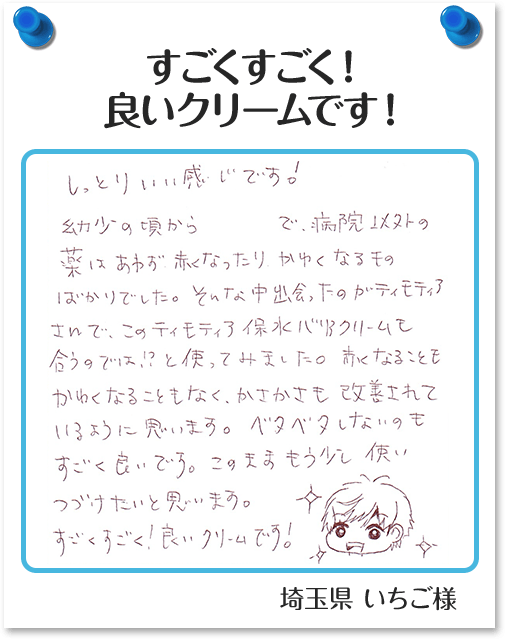 すごくすごく！
良いクリームです！
しっとりいい感じです！
幼少の頃から で、病院以外の
薬はあわず赤くなったり、かわくなるもの
ばかりでした。そんな中出会ったのがティモティア
さんで、このティモティア保水バリアクリームも
合うのでは!?と使ってみました。赤くなることも
かわくなることもなく、かさかさも改善されて
いるように思います。ベタベタしないのも
すごく良いです。このままもう少し使い
つづけたいと思います。
すごくすごく！良いクリームです！
埼玉県 いちご様